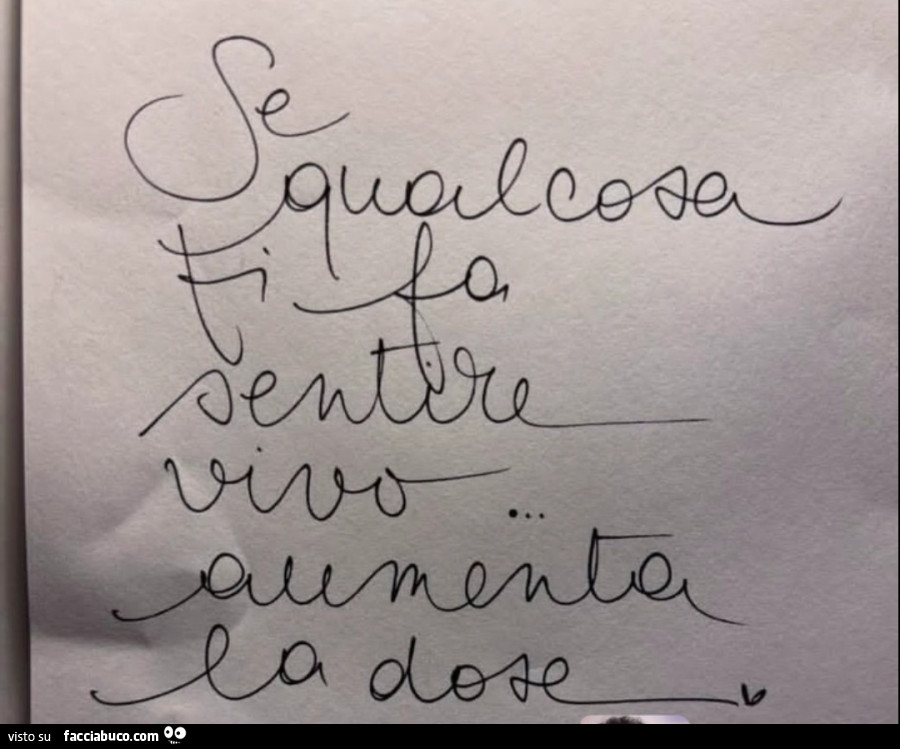 Se
qualcosa
ti fa
sentire
vivo...
aumenta
la dose
visto su facciabuco.com